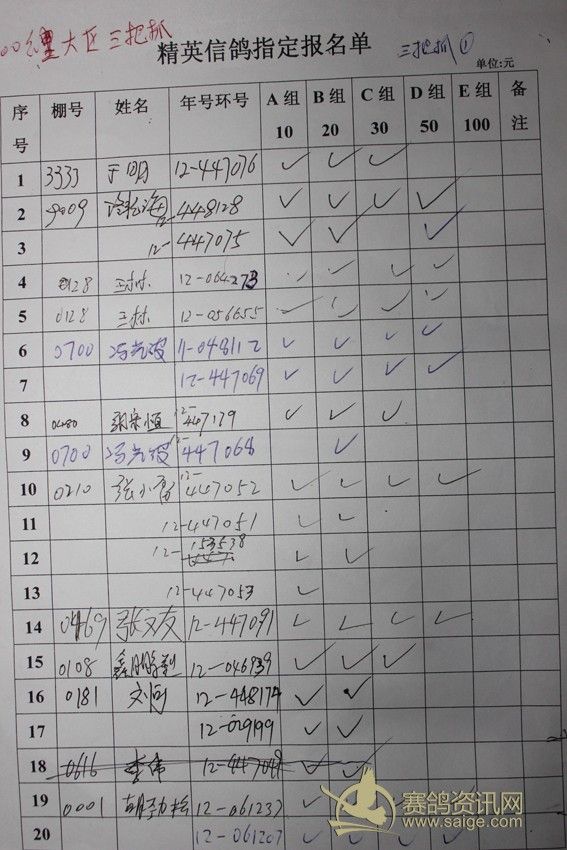 大区三把抓
精英信鸽指定报名单 三把抓①
单位:元
序号 棚号 姓名 年号环号 A组 10 B组 20 C组 30 D组 50 E组 100 备注
1 3333 于明 12-447076 ✓ ✓ ✓
2 9009 12-448128 ✓ ✓ ✓ ✓
3 12-447075 ✓ ✓ ✓
4 0128 王林 12-064273 ✓ ✓ ✓ ✓
5 0128 王林 12-056655 ✓ ✓ ✓ ✓
6 0700 11-048112 ✓ ✓ ✓ ✓
7 12-447069 ✓ ✓ ✓ ✓
8 0480 12-447179 ✓ ✓ ✓
9 0700 12-447068 ✓
10 0210 12-447052 ✓ ✓ ✓ ✓
11 12-447051 ✓ ✓
12 12-153538 ✓ ✓
13 12-447053 ✓
14 0469 张文友 12-447091 ✓ ✓ ✓ ✓
15 0108 12-046939 ✓ ✓ ✓
16 0181 12-448174 ✓ ✓
17 12-029199 ✓ ✓
18 0616 李伟 12-447049 ✓ ✓
19 0001 12-061237 ✓ ✓
20 12-061207 ✓ ✓ ✓ ✓
赛鸽资讯网
www.saige.com